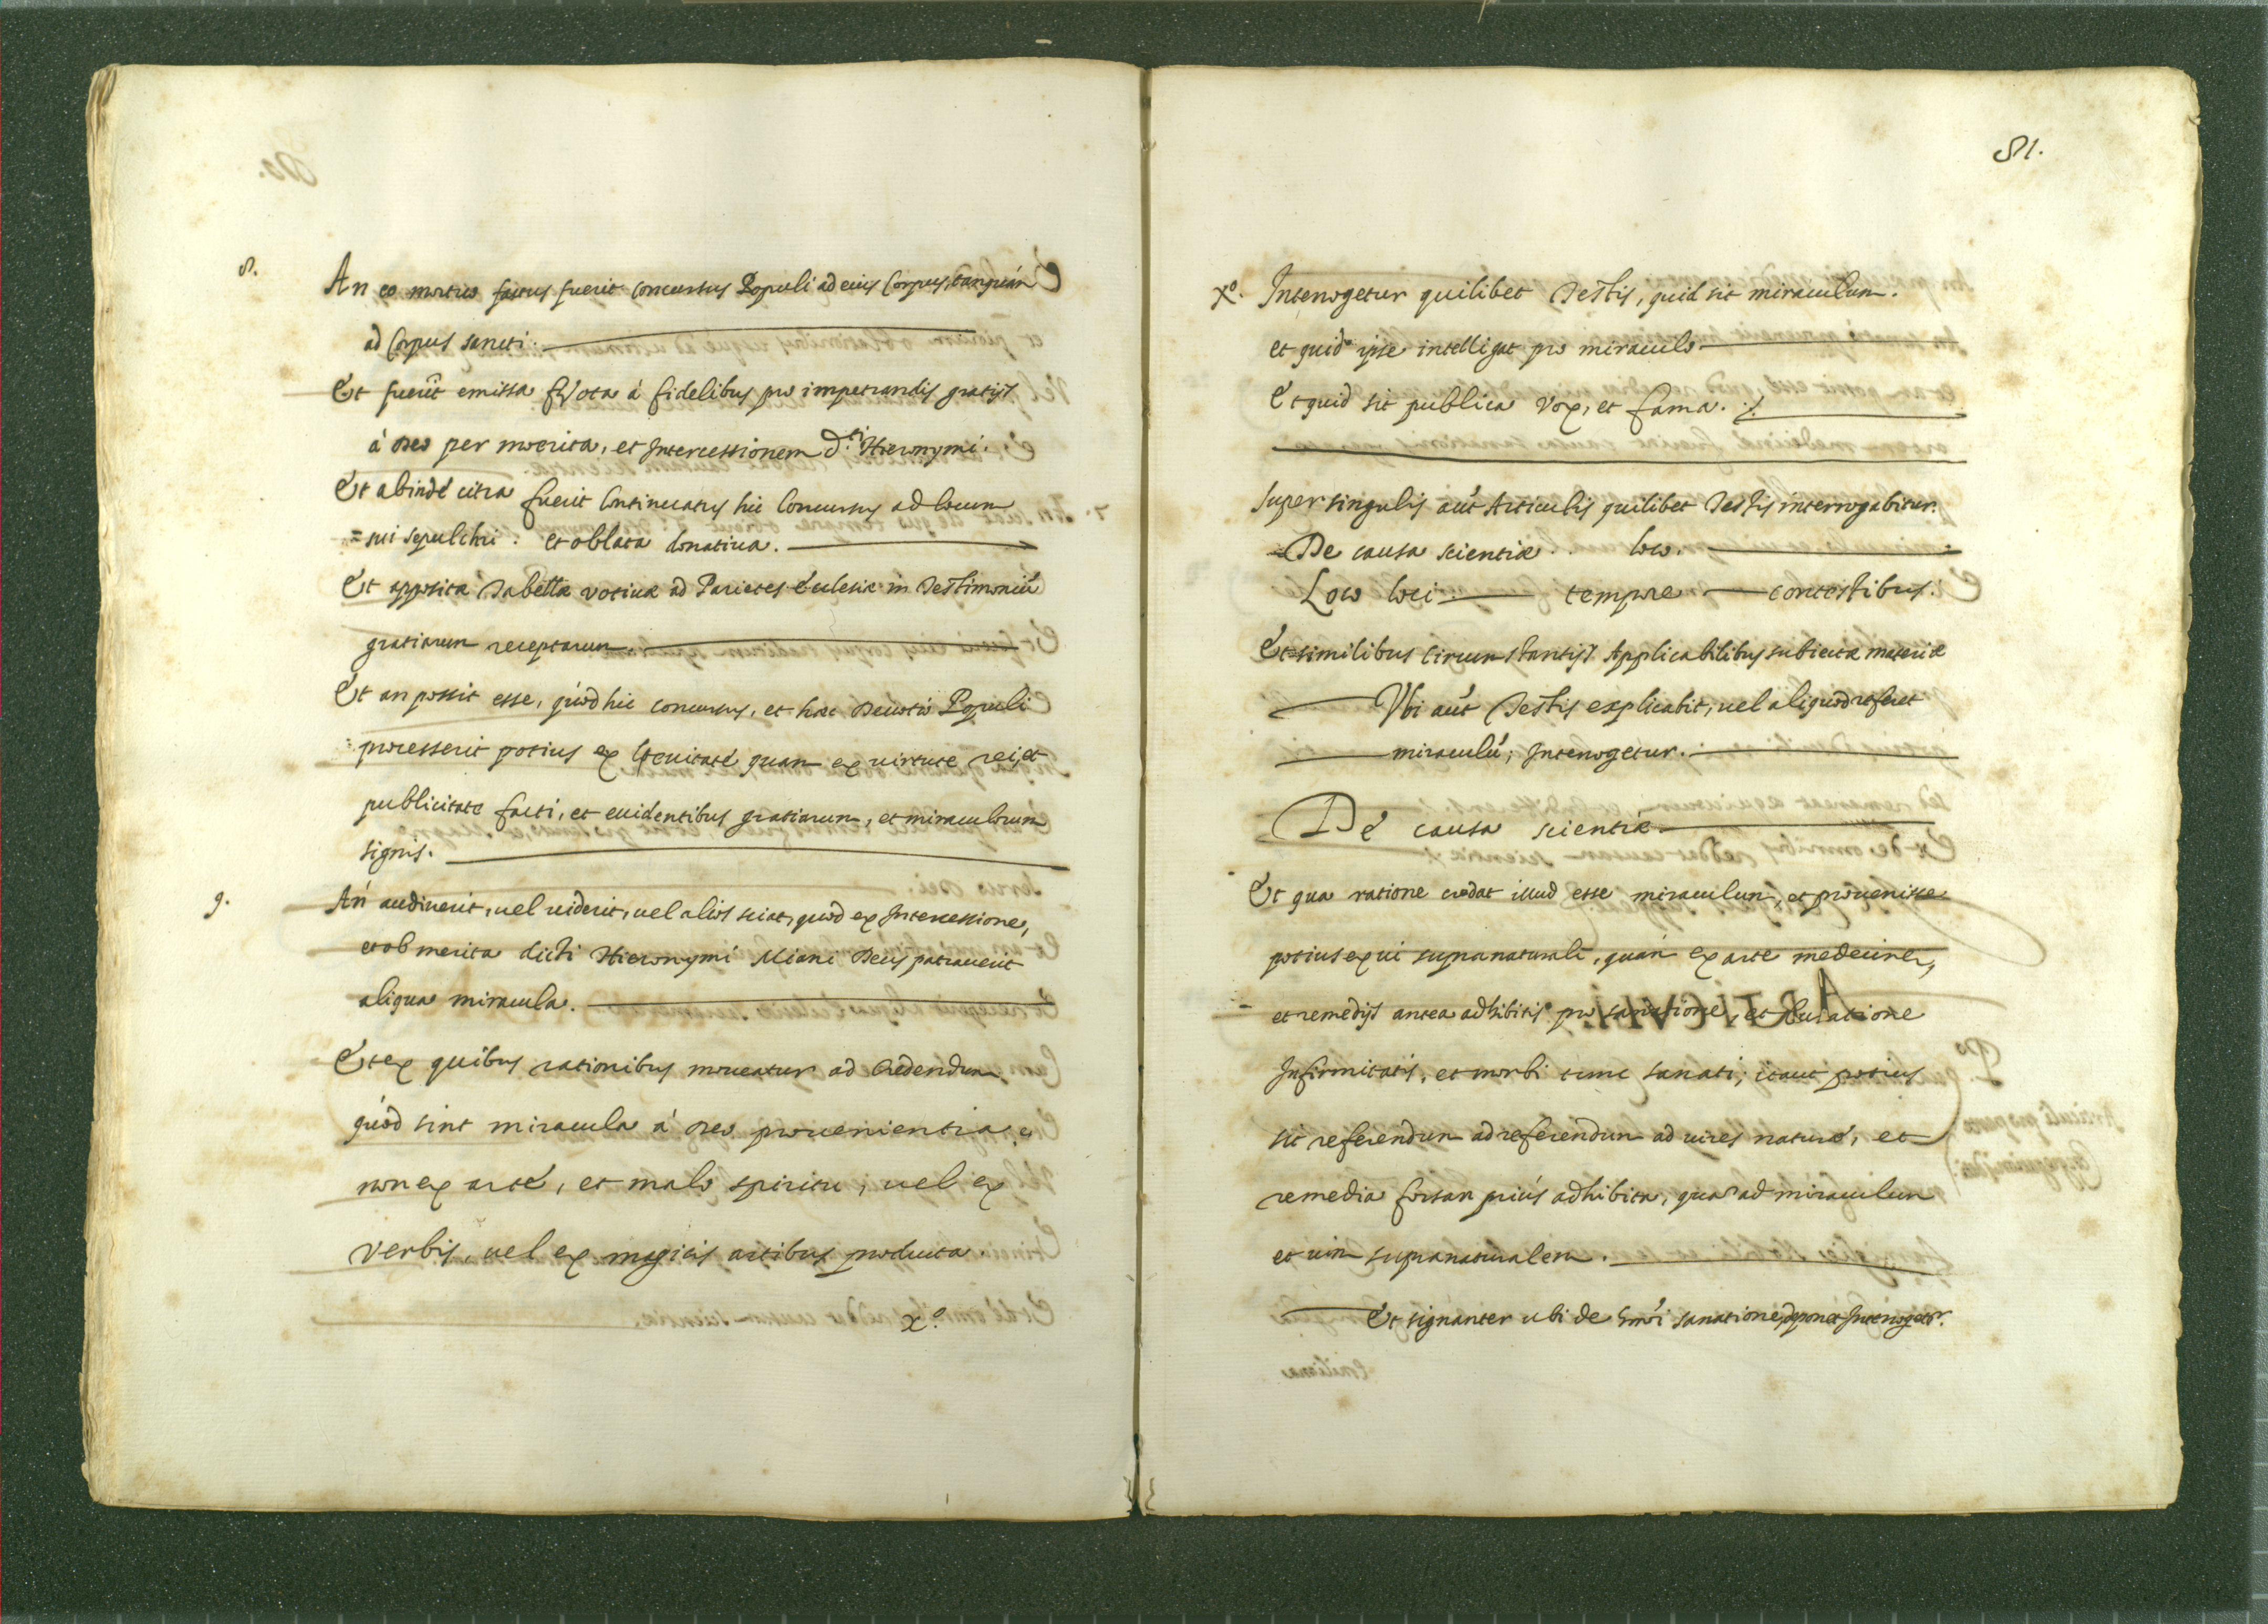 8. An eo mortuo factus fuerit concursus Populi ad eius Corpus, tanquàm
ad Corpus sancti.
Et fuerĩt emissa Vota à fidelibus pro impetrandis gratijs
à Deo per merita, et Intercessionem d.ti Hieronymi.
Et abindè citra fuerit continuatus hic Concursus ad locum
= sui sepulchri: et oblata donatiua.
Et apposita Tabella votiua ad Parietes Ecclesiæ in Testimoniũ
gratiarum receptarum.
Et an possit esse, quòd hic concursus, et hæc Deuotio Populi
processerit potius ex leuitate quam ex uirtute rei, et
publicitate facti, et euidentibus gratiarum, et miraculorum
signis.
9. An audiuerit, uel uiderit, uel aliàs sciat, quod ex Intercessione,
et ob merita dicti Hieronymi Miani Deus patrauerit
aliqua miracula.
Et ex quibus rationibus moueatur ad Credendum
quòd sint miracula à Deo prouenientia, et
non ex arte, et malo spiritu, uel ex
verbis, uel ex magicis artibus producta.
x.o
81.
xo. Interrogetur quilibet Testis, quid sit miraculum.
et quid ipse intelligat pro miraculo
Et quid sit publica vox, et fama.
super singulis aũt Articulis quilibet Testis interrogabitur.
De causa scientiæ loco.
Loco loci tempore contestibus.
Et similibus Circumstantijs Applicabilibus subiectæ materiæ
Vbi aũt Testis explicabit, uel aliquod referet
miraculũ; Interrogetur.
De causa scientiæ
Et qua ratione credat illud esse miraculum, et prouenisse
potius ex ui supranaturali, quàm ex arte medecinæ,
et remedijs antea adhibitis pro sanatione, et curatione
Infirmitatis, et morbi tunc sanati; itaut potius
sit referendum ad referendum ad uires naturæ, et
remedia forsan priùs adhibita, quam ad miraculum
et uim supranaturalem.
Et signanter ubi de sanatione deponet Interrogetr.